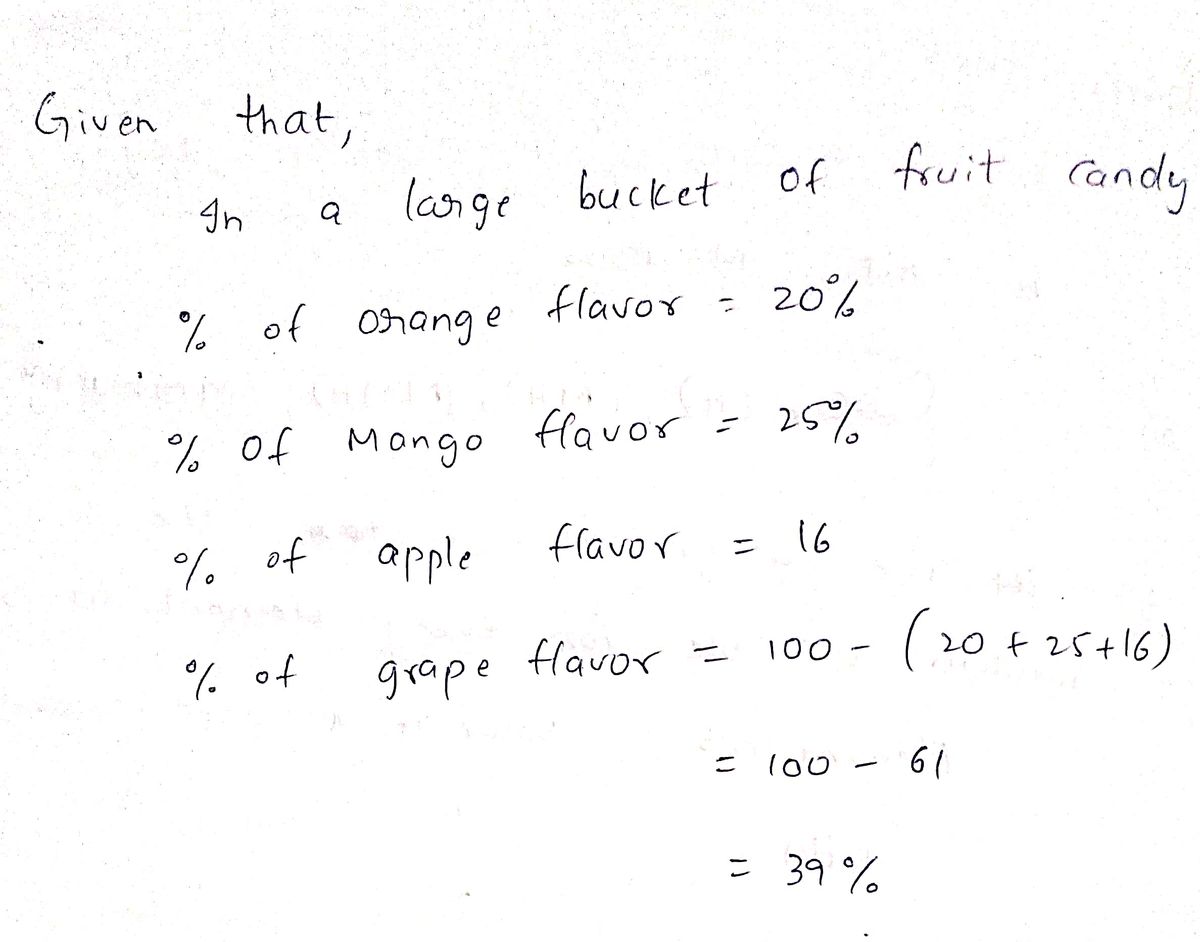 Given that,
In a large bucket of fruit candy
% of orange flavor = 20%
% of Mango flavor = 25%
% of apple flavor = 16
% of grape flavor = 100 - (20 + 25+16)
= 100 - 61
= 39%